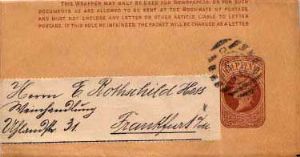 THIS WRAPPER MAY ONLY BE USED FOR NEWSPAPERS, OR FOR
SUCH DOCUMENTS AS ARE ALLOWED TO BE SENT AT THE BOOK-RATE OF POSTAGE,
AND MUST NOT ENCLOSE ANY LETTER OR OTHER ARTICLE LIABLE TO LETTER
POSTAGE. IF THIS RULE BE INFRINGED, THE PACKET WILL BE CHARGED AS A LETTER
Herrn E Rothschild Hess
Weinhandlung
Uhlandstr 31
Frankfurt a/m